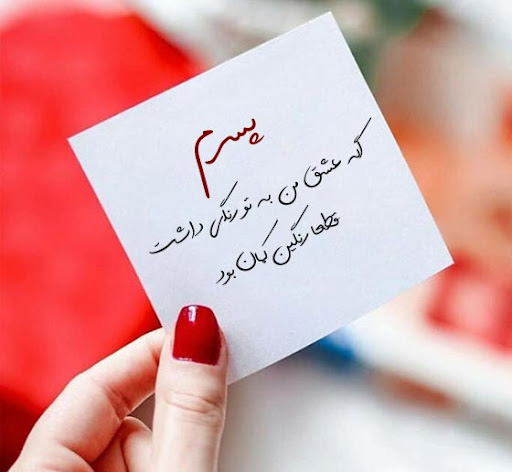 پسرم
اگه عشق من به تو رنگی داشت
قطعا رنگین کمان بود